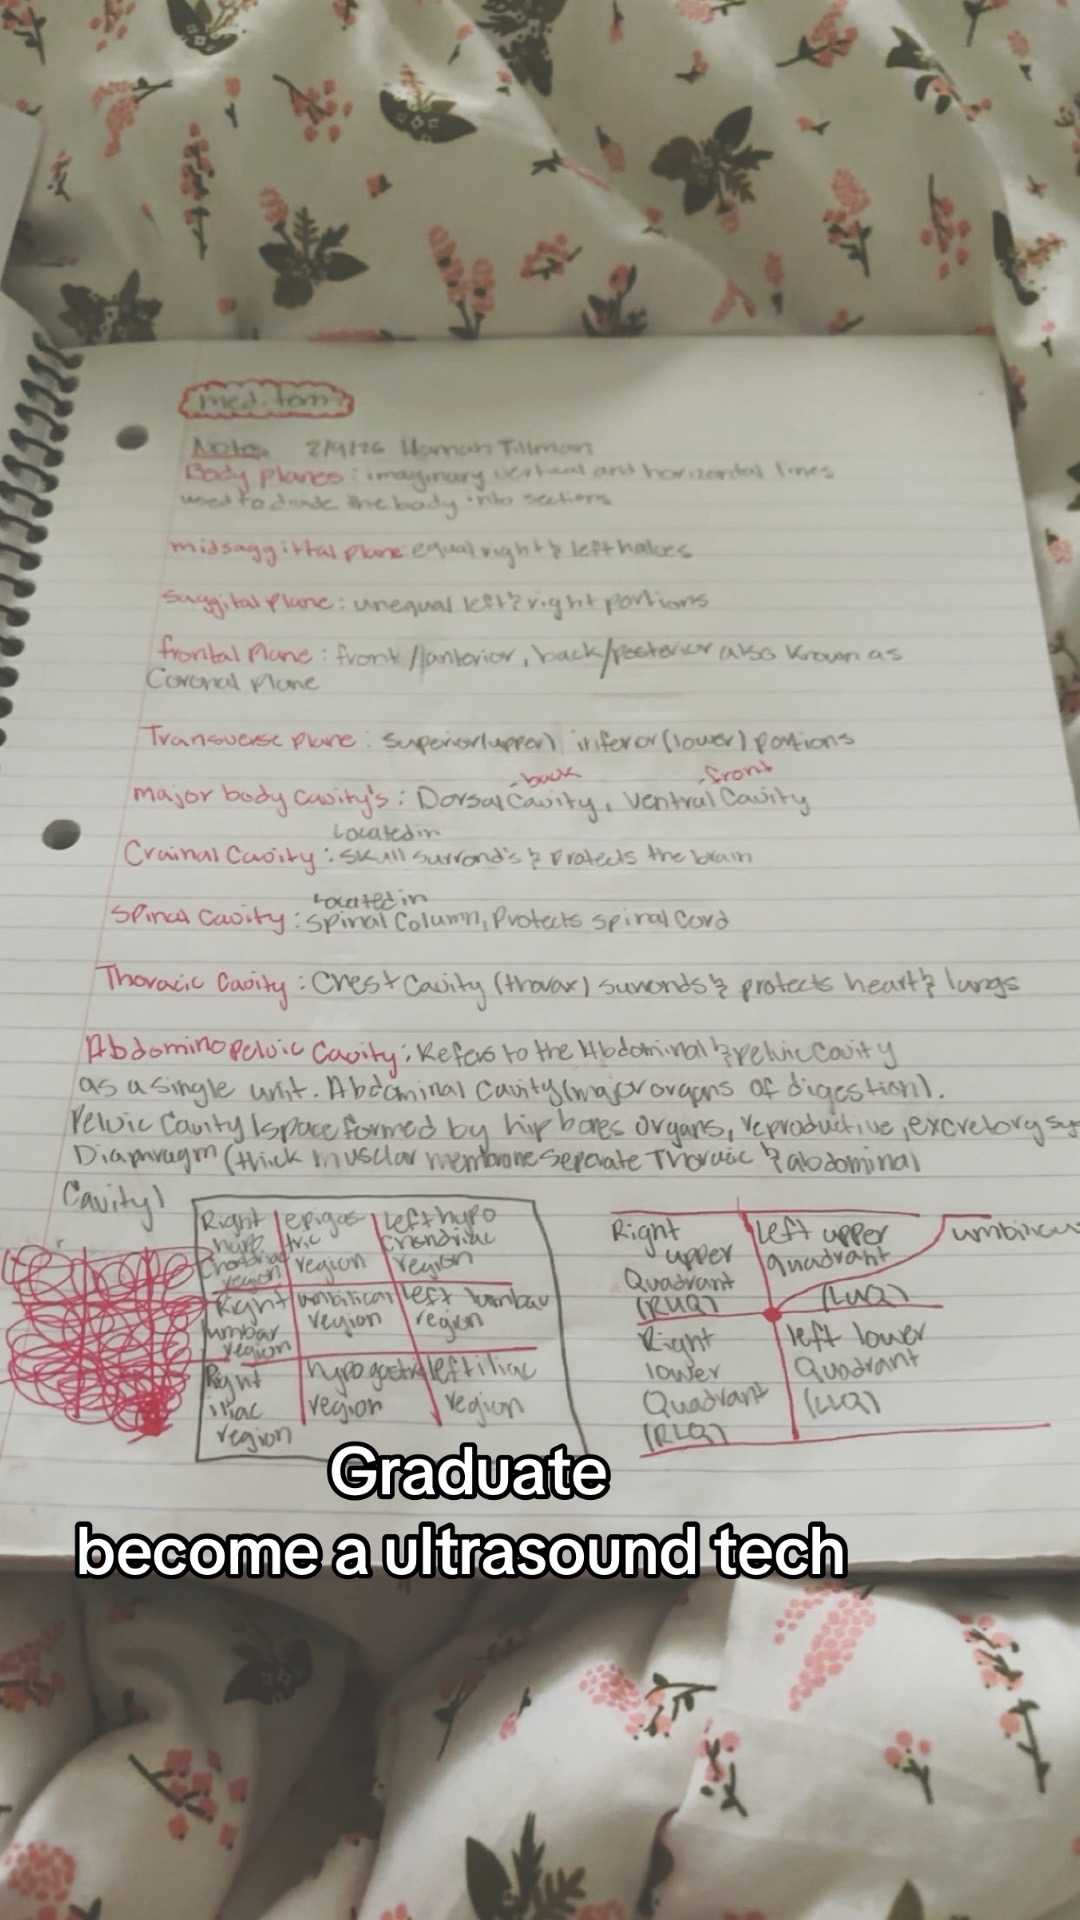 med. term
Notes 2/9/26 Hannah Tillman
Body planes: imaginary vertical and horizontal lines
used to divide the body into sections
midsaggittal plane: equal right & left halves
Saggital Plane: unequal left & right portions
frontal Plane: front/anterior, back/posterior also known as
Coronal Plane
Transverse plane: superior(upper) inferor(lower) portions
-back -front
major body Cavity's: Dorsal Cavity, Ventral Cavity
Located in
Crainal Cavity: Skull surrond's & Protects the brain
Located in
Spinal Cavity: Spinal Column, Protects spinal Cord
Thoracic Cavity: Chest Cavity (thorax) surronds & protects heart & lungs
Abdominopelvic Cavity: Refers to the Abdominal & pelvic cavity
as a single unit. Abdominal Cavity (major organs of digestion).
Pelvic Cavity (space formed by hip bones organs, reproductive, excretory sy
Diaphragm (thick muscular membrane seperate Thoracic & abdominal
Cavity)
Right hypo chondriac region
epigas tric region
left hypo chondriac region
Right lumbar region
umbilical region
left lumbar region
Right iliac region
hypogastric region
left iliac region
Right upper Quadrant (RUQ)
left upper quadrant (LUQ)
umbilicus
Right lower Quadrant (RLQ)
left lower Quadrant (LLQ)
Graduate
become a ultrasound tech